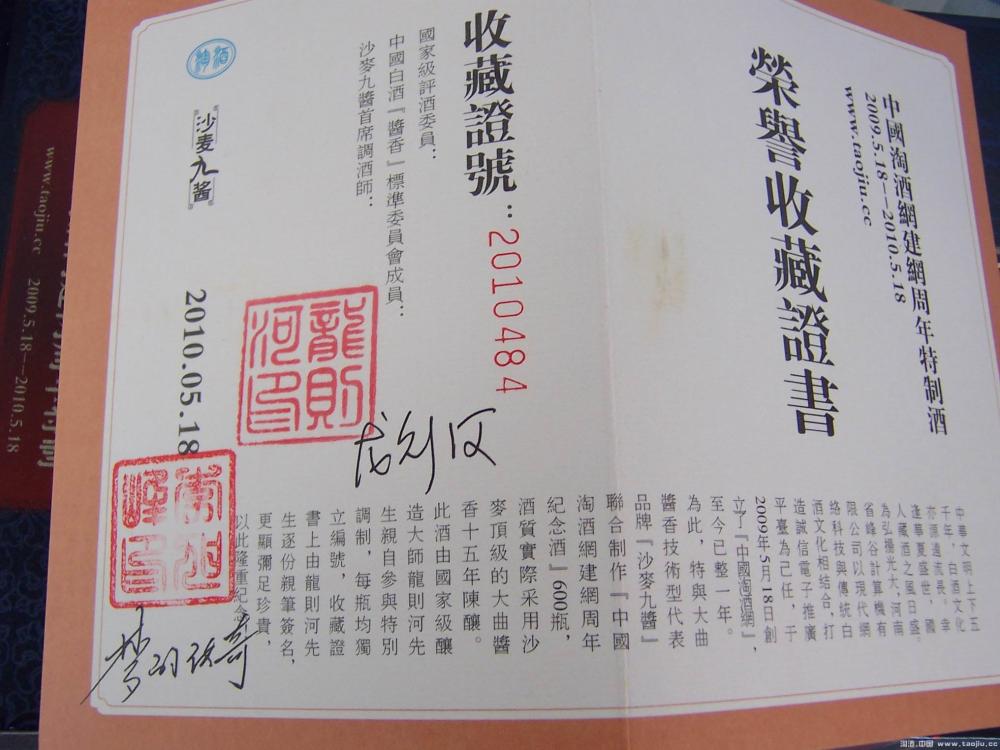 中國淘酒網建網周年特制酒
2009.5.18—2010.5.18
www.taojiu.cc
榮譽收藏證書
中華文明上下五
千年，白酒文化
亦源遠流長。幸
逢華夏盛世，國
人藏酒之風日盛。
為弘揚光大，河南
省峰谷計算機有
限公司以現代網
絡科技與傳統白
酒文化相結合，打
造誠信電子推廣
平臺為己任，于
2009年5月18日創
立了『中國淘酒網』，
至今已整一年。
為此，特與大曲
醬香技術型代表
品牌『沙麥九醬』
聯合制作『中國
淘酒網建網周年
紀念酒』600瓶，
酒質實際采用沙
麥頂級的大曲醬
香十五年陳釀。
此酒由國家級釀
造大師龍則河先
生親自參與特別
調制，每瓶均獨
立編號，收藏證
書上由龍則河先
生逐份親筆簽名，
更顯彌足珍貴，
以此隆重紀念
收藏證號：2010484
國家級評酒委員：
中國白酒『醬香』標準委員會成員：
沙麥九醬首席調酒師：
龍則
河印
龙则河
淘酒
沙麦九酱
2010.05.18
www.taojiu.cc 2009.5.18—2010.5.18
淘酒.中国 www.taojiu.cc